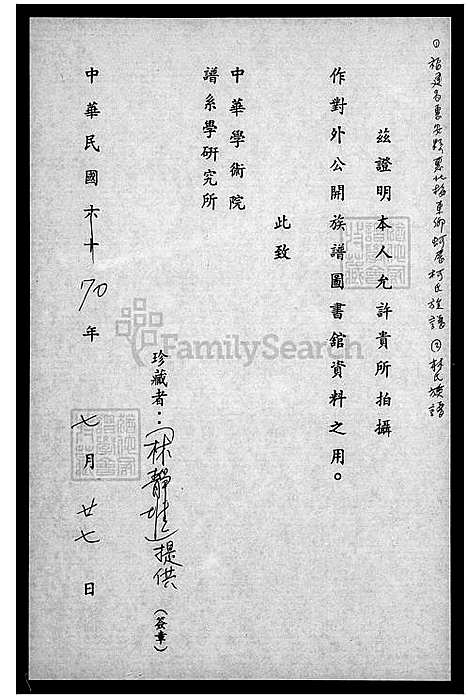 ① 福建省惠安縣惠北 東鄉蚵厝柯氏族譜 ② 林氏族譜
茲證明本人允許貴所拍攝
作對外公開族譜圖書館資料之用。
此致
中華學術院
譜系學研究所
珍藏者：林靜 提供 （簽章）
中華民國六十 70 年 七 月 廿七 日
FamilySearch